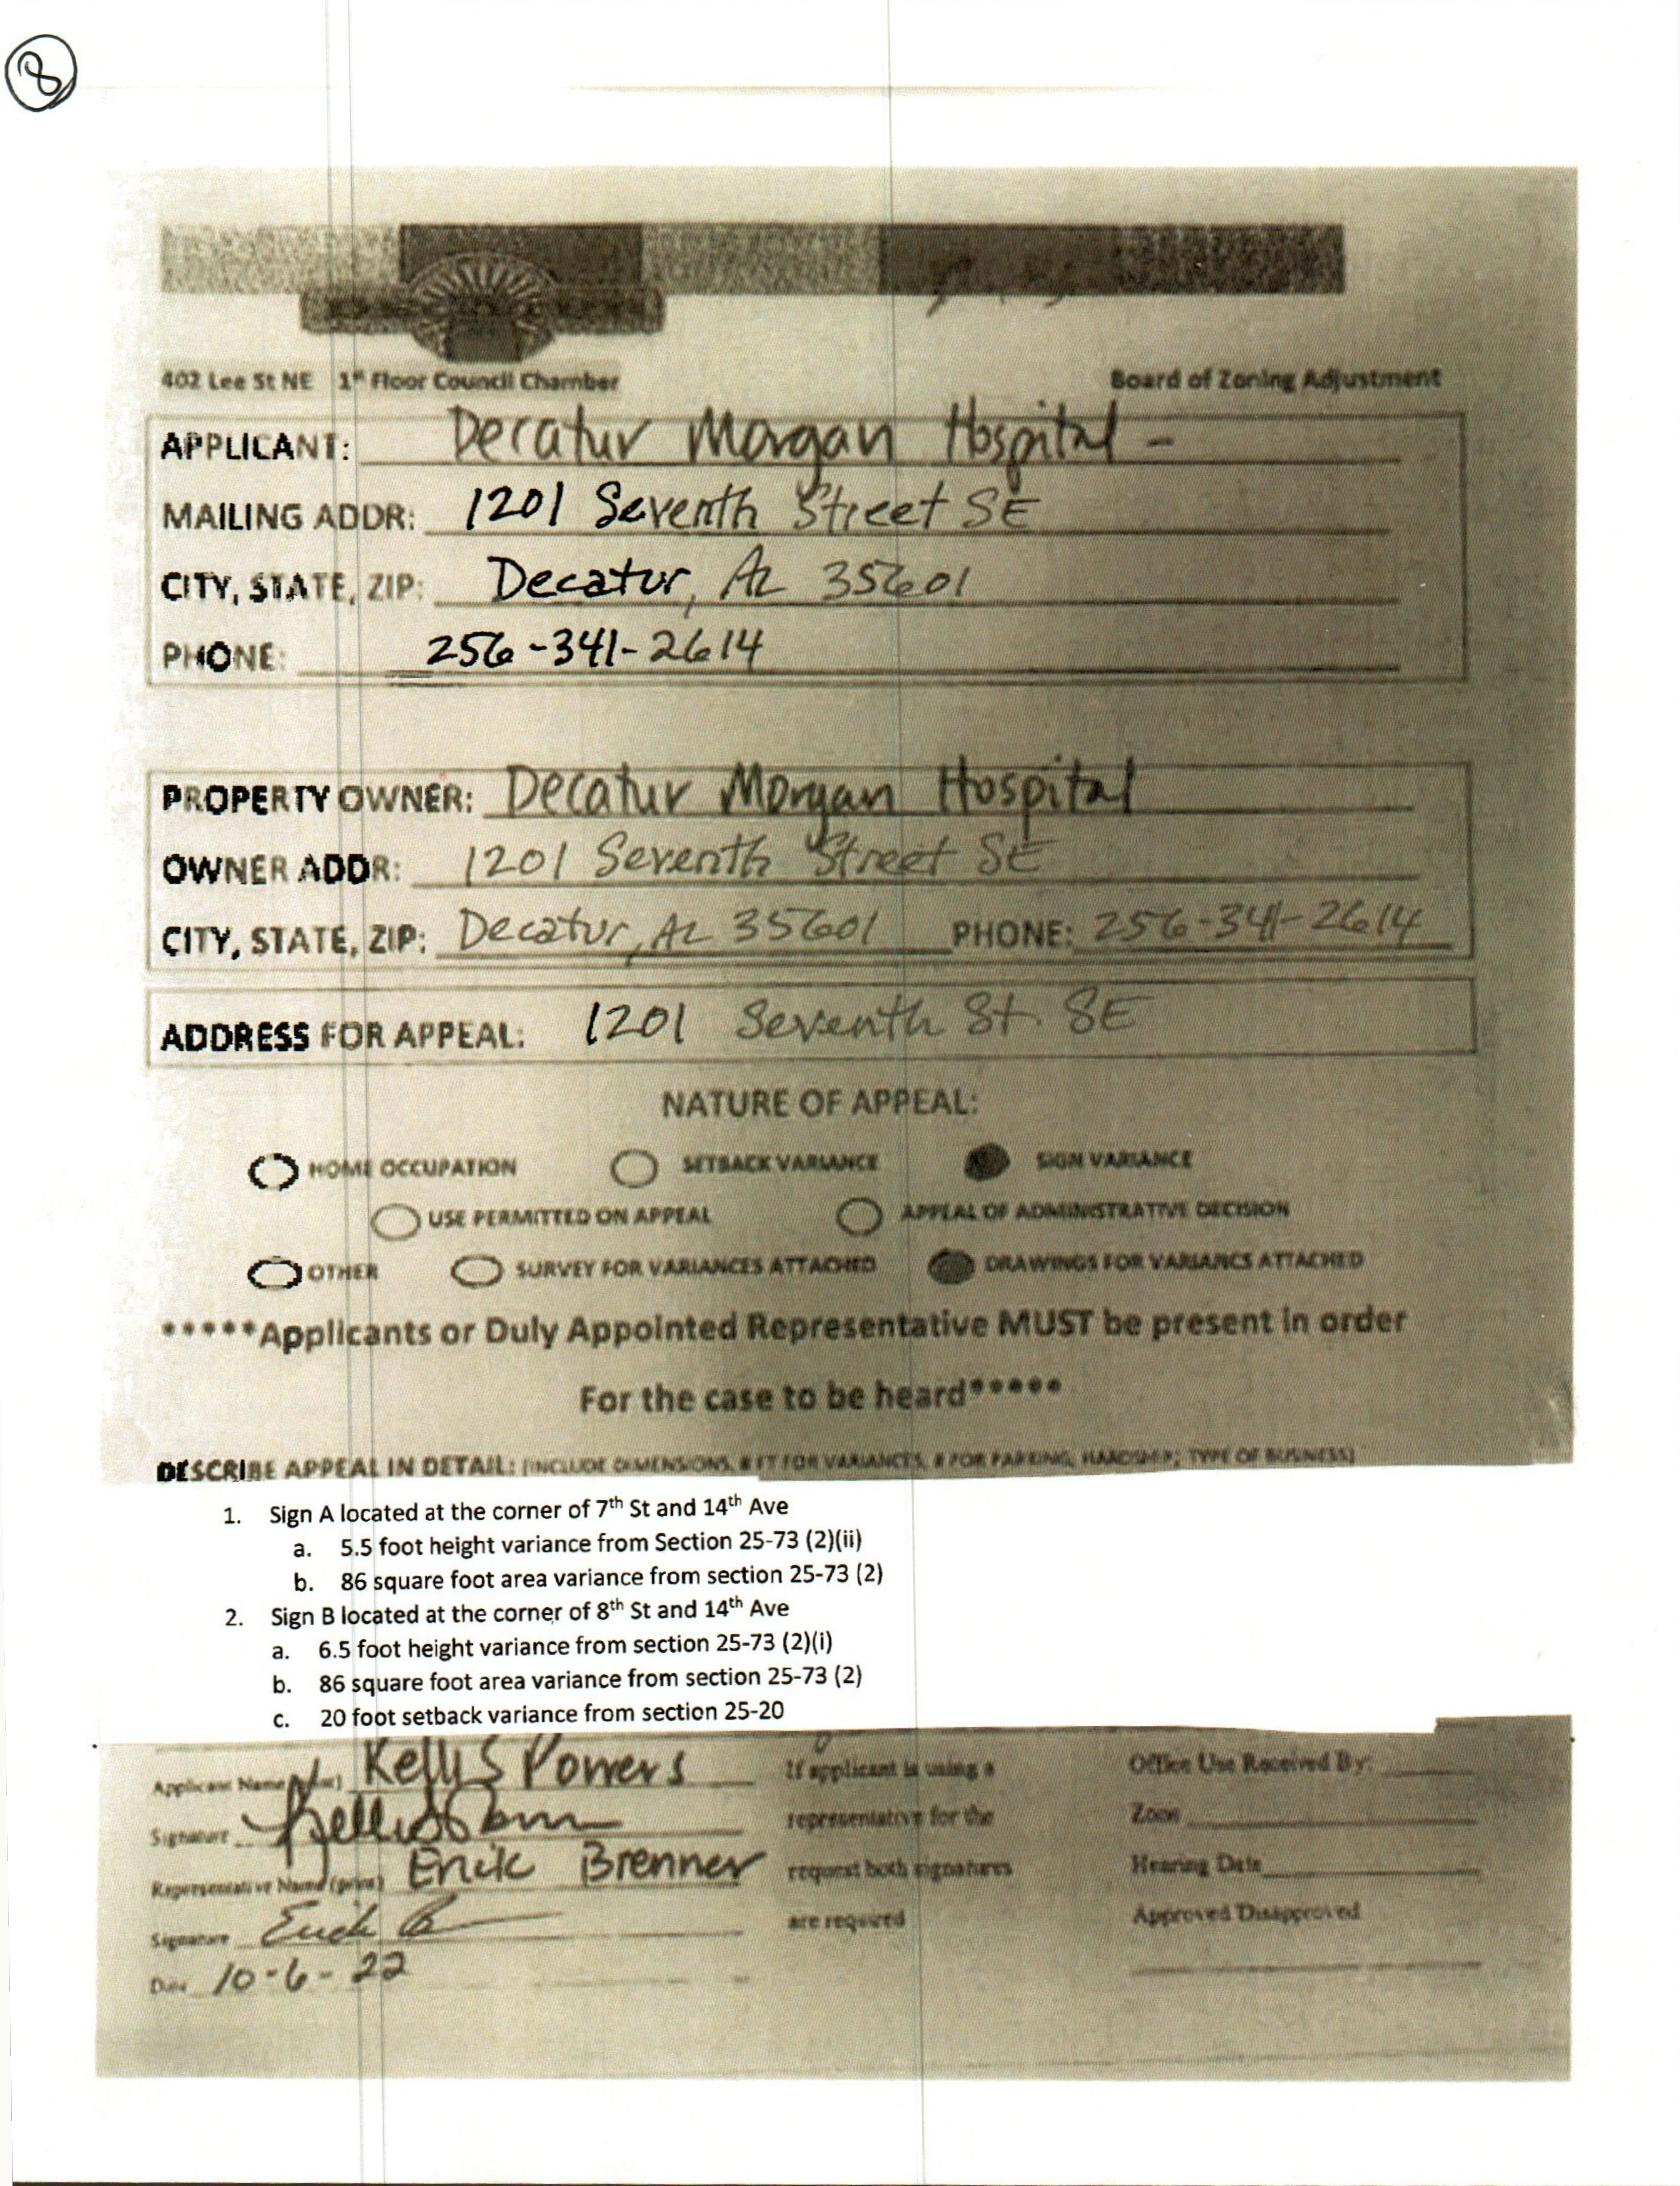 8
402 Lee St NE 1st Floor Council Chamber Board of Zoning Adjustment
APPLICANT: Decatur Morgan Hospital -
MAILING ADDR: 1201 Seventh Street SE
CITY, STATE, ZIP: Decatur, AL 35601
PHONE: 256-341-2614
PROPERTY OWNER: Decatur Morgan Hospital
OWNER ADDR: 1201 Seventh Street SE
CITY, STATE, ZIP: Decatur, AL 35601 PHONE: 256-341-2614
ADDRESS FOR APPEAL: 1201 Seventh St. SE
NATURE OF APPEAL:
HOME OCCUPATION SETBACK VARIANCE SIGN VARIANCE
USE PERMITTED ON APPEAL APPEAL OF ADMINISTRATIVE DECISION
OTHER SURVEY FOR VARIANCES ATTACHED DRAWINGS FOR VARIANCS ATTACHED
*****Applicants or Duly Appointed Representative MUST be present in order
For the case to be heard*****
DESCRIBE APPEAL IN DETAIL: (INCLUDE DIMENSIONS, # FT FOR VARIANCES, # FOR PARKING, HARDSHIP; TYPE OF BUSINESS)
1. Sign A located at the corner of 7th St and 14th Ave
a. 5.5 foot height variance from Section 25-73 (2)(ii)
b. 86 square foot area variance from section 25-73 (2)
2. Sign B located at the corner of 8th St and 14th Ave
a. 6.5 foot height variance from section 25-73 (2)(i)
b. 86 square foot area variance from section 25-73 (2)
c. 20 foot setback variance from section 25-20
Applicant Name (print) Kelli S Powers If applicant is using a Office Use Received By:
Signature Kelli S Powers representative for the Zone
Representative Name (print) Erick Brenner request both signatures Hearing Date
Signature Erick B are required Approved Disapproved
Date 10-6-22